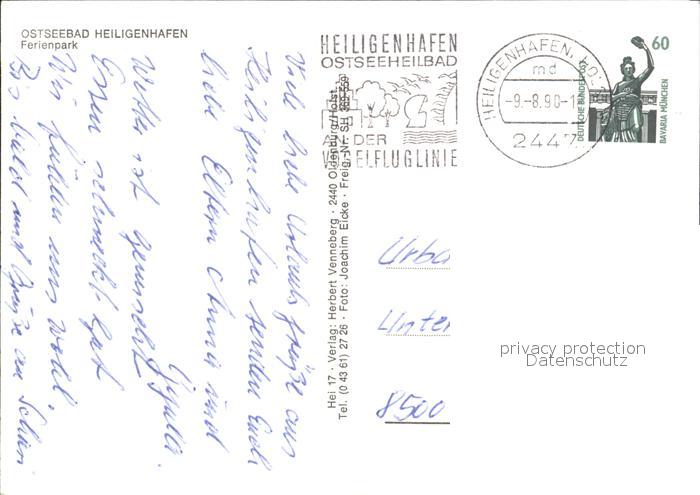 OSTSEEBAD HEILIGENHAFEN
Ferienpark
HEILIGENHAFEN
OSTSEEHEILBAD
AN DER
VOGELFLUGLINIE
HEILIGENHAFEN, HOLST
md
-9.-8.90-1
2447
60
DEUTSCHE BUNDESPOST
BAVARIA MÜNCHEN
Hei 17 · Verlag: Herbert Venneberg · 2440 Oldenburg/Holst.
Tel. (0 43 61) 27 26 · Foto: Joachim Eicke · Freig.-Nr. SH
Viele liebe Urlaubsgrüße aus
Heiligenhafen senden Euch
liebe Eltern Anna und
Wetter ist
Essen schmeckt gut
Wir fühlen uns wohl.
Bis bald und Grüße an
Urba
Unter
8500
privacy protection
Datenschutz